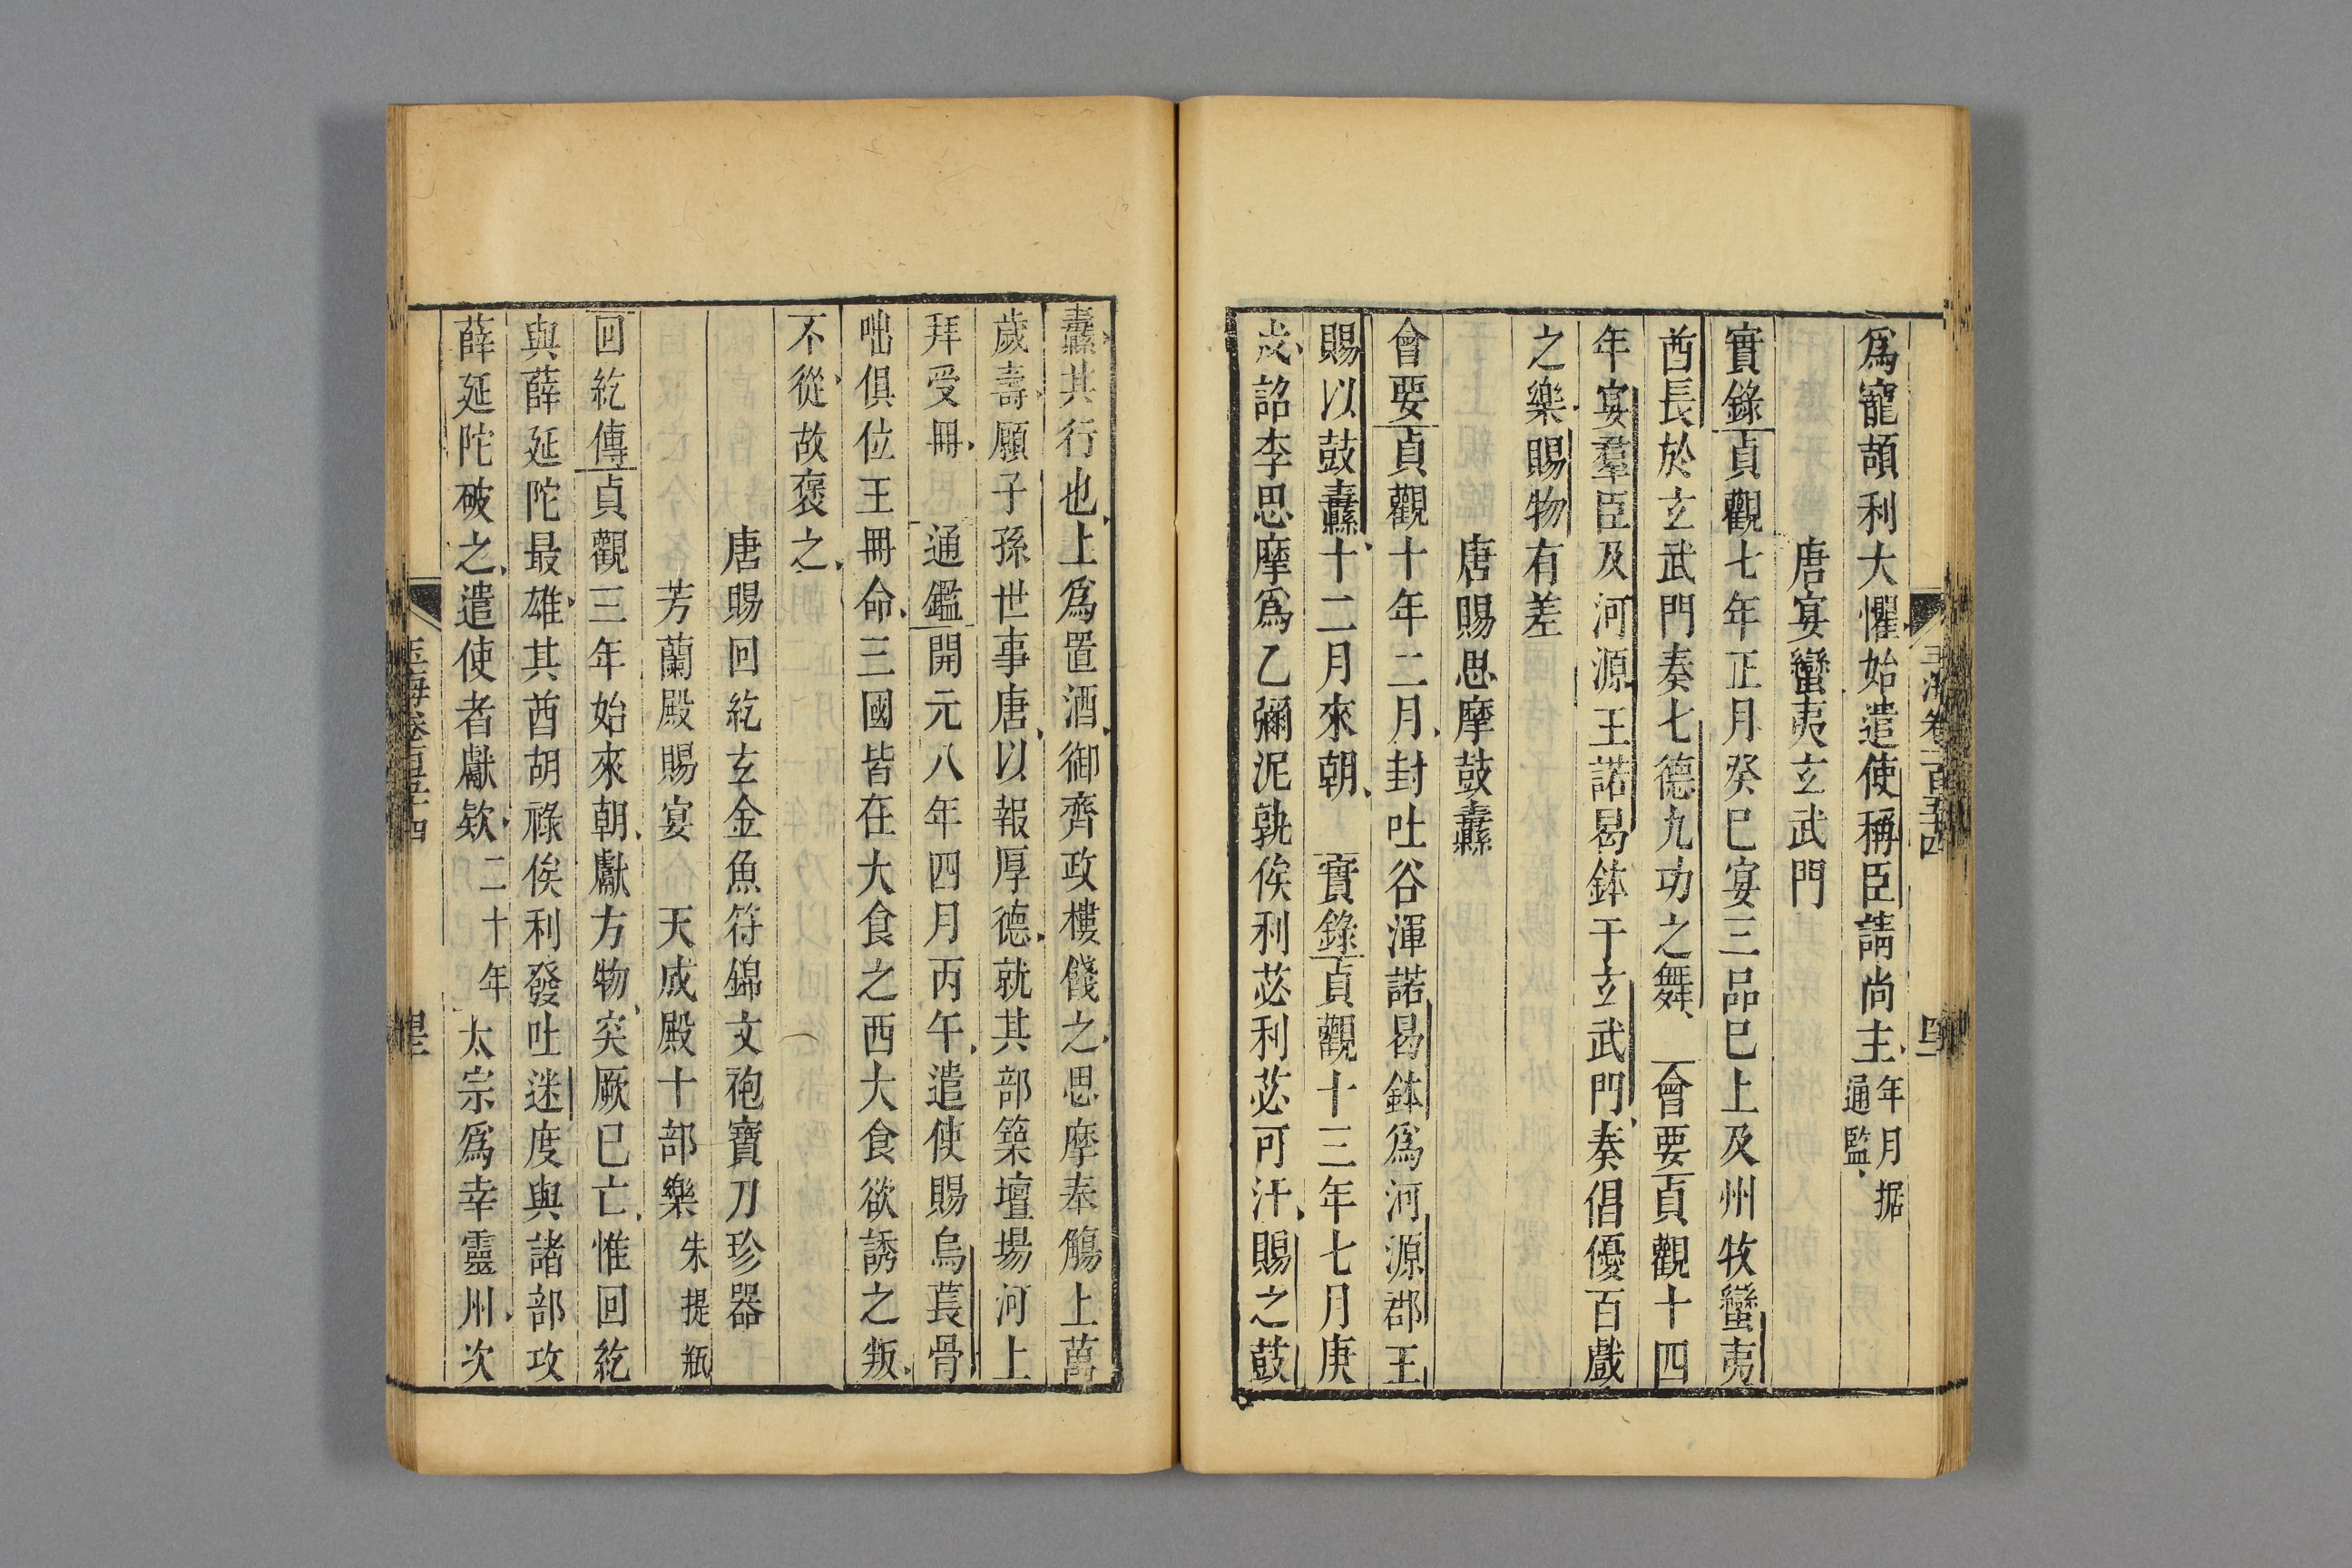 爲寵頡利大懼始遣使稱臣請尚主年月据通監
唐宴蠻夷玄武門
實錄貞觀七年正月癸巳宴三品巳上及州牧蠻夷
酋長於玄武門奏七德九功之舞會要貞觀十四
年宴羣臣及河源王諾曷鉢于玄武門奏倡優百戲
之樂賜物有差
唐賜思摩鼓纛
會要貞觀十年二月封吐谷渾諾曷鉢爲河源郡王
賜以鼓纛十二月來朝實錄貞觀十三年七月庚
戌詔李思摩爲乙彌泥孰俟利苾利苾可汗賜之鼓
纛其行也上爲置酒御齊政樓餞之思摩奉觴上萬
歲壽願子孫世事唐以報厚德就其部築壇場河上
拜受冊通鑑開元八年四月丙午遣使賜烏萇骨
咄俱位王冊命三國皆在大食之西大食欲誘之叛
不從故褒之
唐賜回紇玄金魚符錦文袍寶刀珍器
芳蘭殿賜宴天成殿十部樂朱提瓶
回紇傳貞觀三年始來朝獻方物突厥已亡惟回紇
與薛延陀最雄其酋胡祿俟利發吐迷度與諸部攻
薛延陀破之遣使者獻欵二十年太宗爲幸靈州次
玉海卷一百五十四
玉海卷百五十四